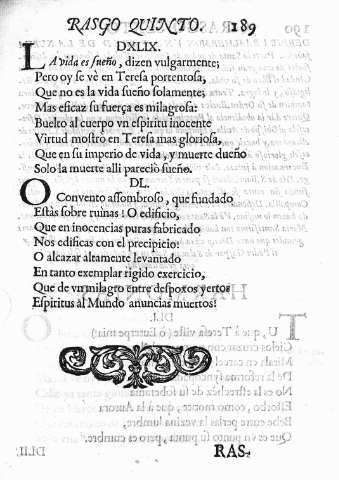 RASGO QUINTO. 189
DXLIX.
LA vida es sueño, dizen vulgarmente;
Pero oy se vè en Teresa portentosa,
Que no es la vida sueño solamente;
Mas eficaz su fuerça es milagrosa:
Buelto al cuerpo vn espiritu inocente
Virtud mostrò en Teresa mas gloriosa,
Que en su imperio de vida, y muerte dueño
Solo la muerte alli pareciò sueño.
DL.
O Convento assombroso, que fundado
Estàs sobre ruinas! O edificio,
Que en inocencias puras fabricado
Nos edificas con el precipicio!
O alcazar altamente levantado
En tanto exemplar rigido exercicio,
Que de vn milagro entre despojos yertos
Espiritus àl Mundo anuncias muertos!
RAS-